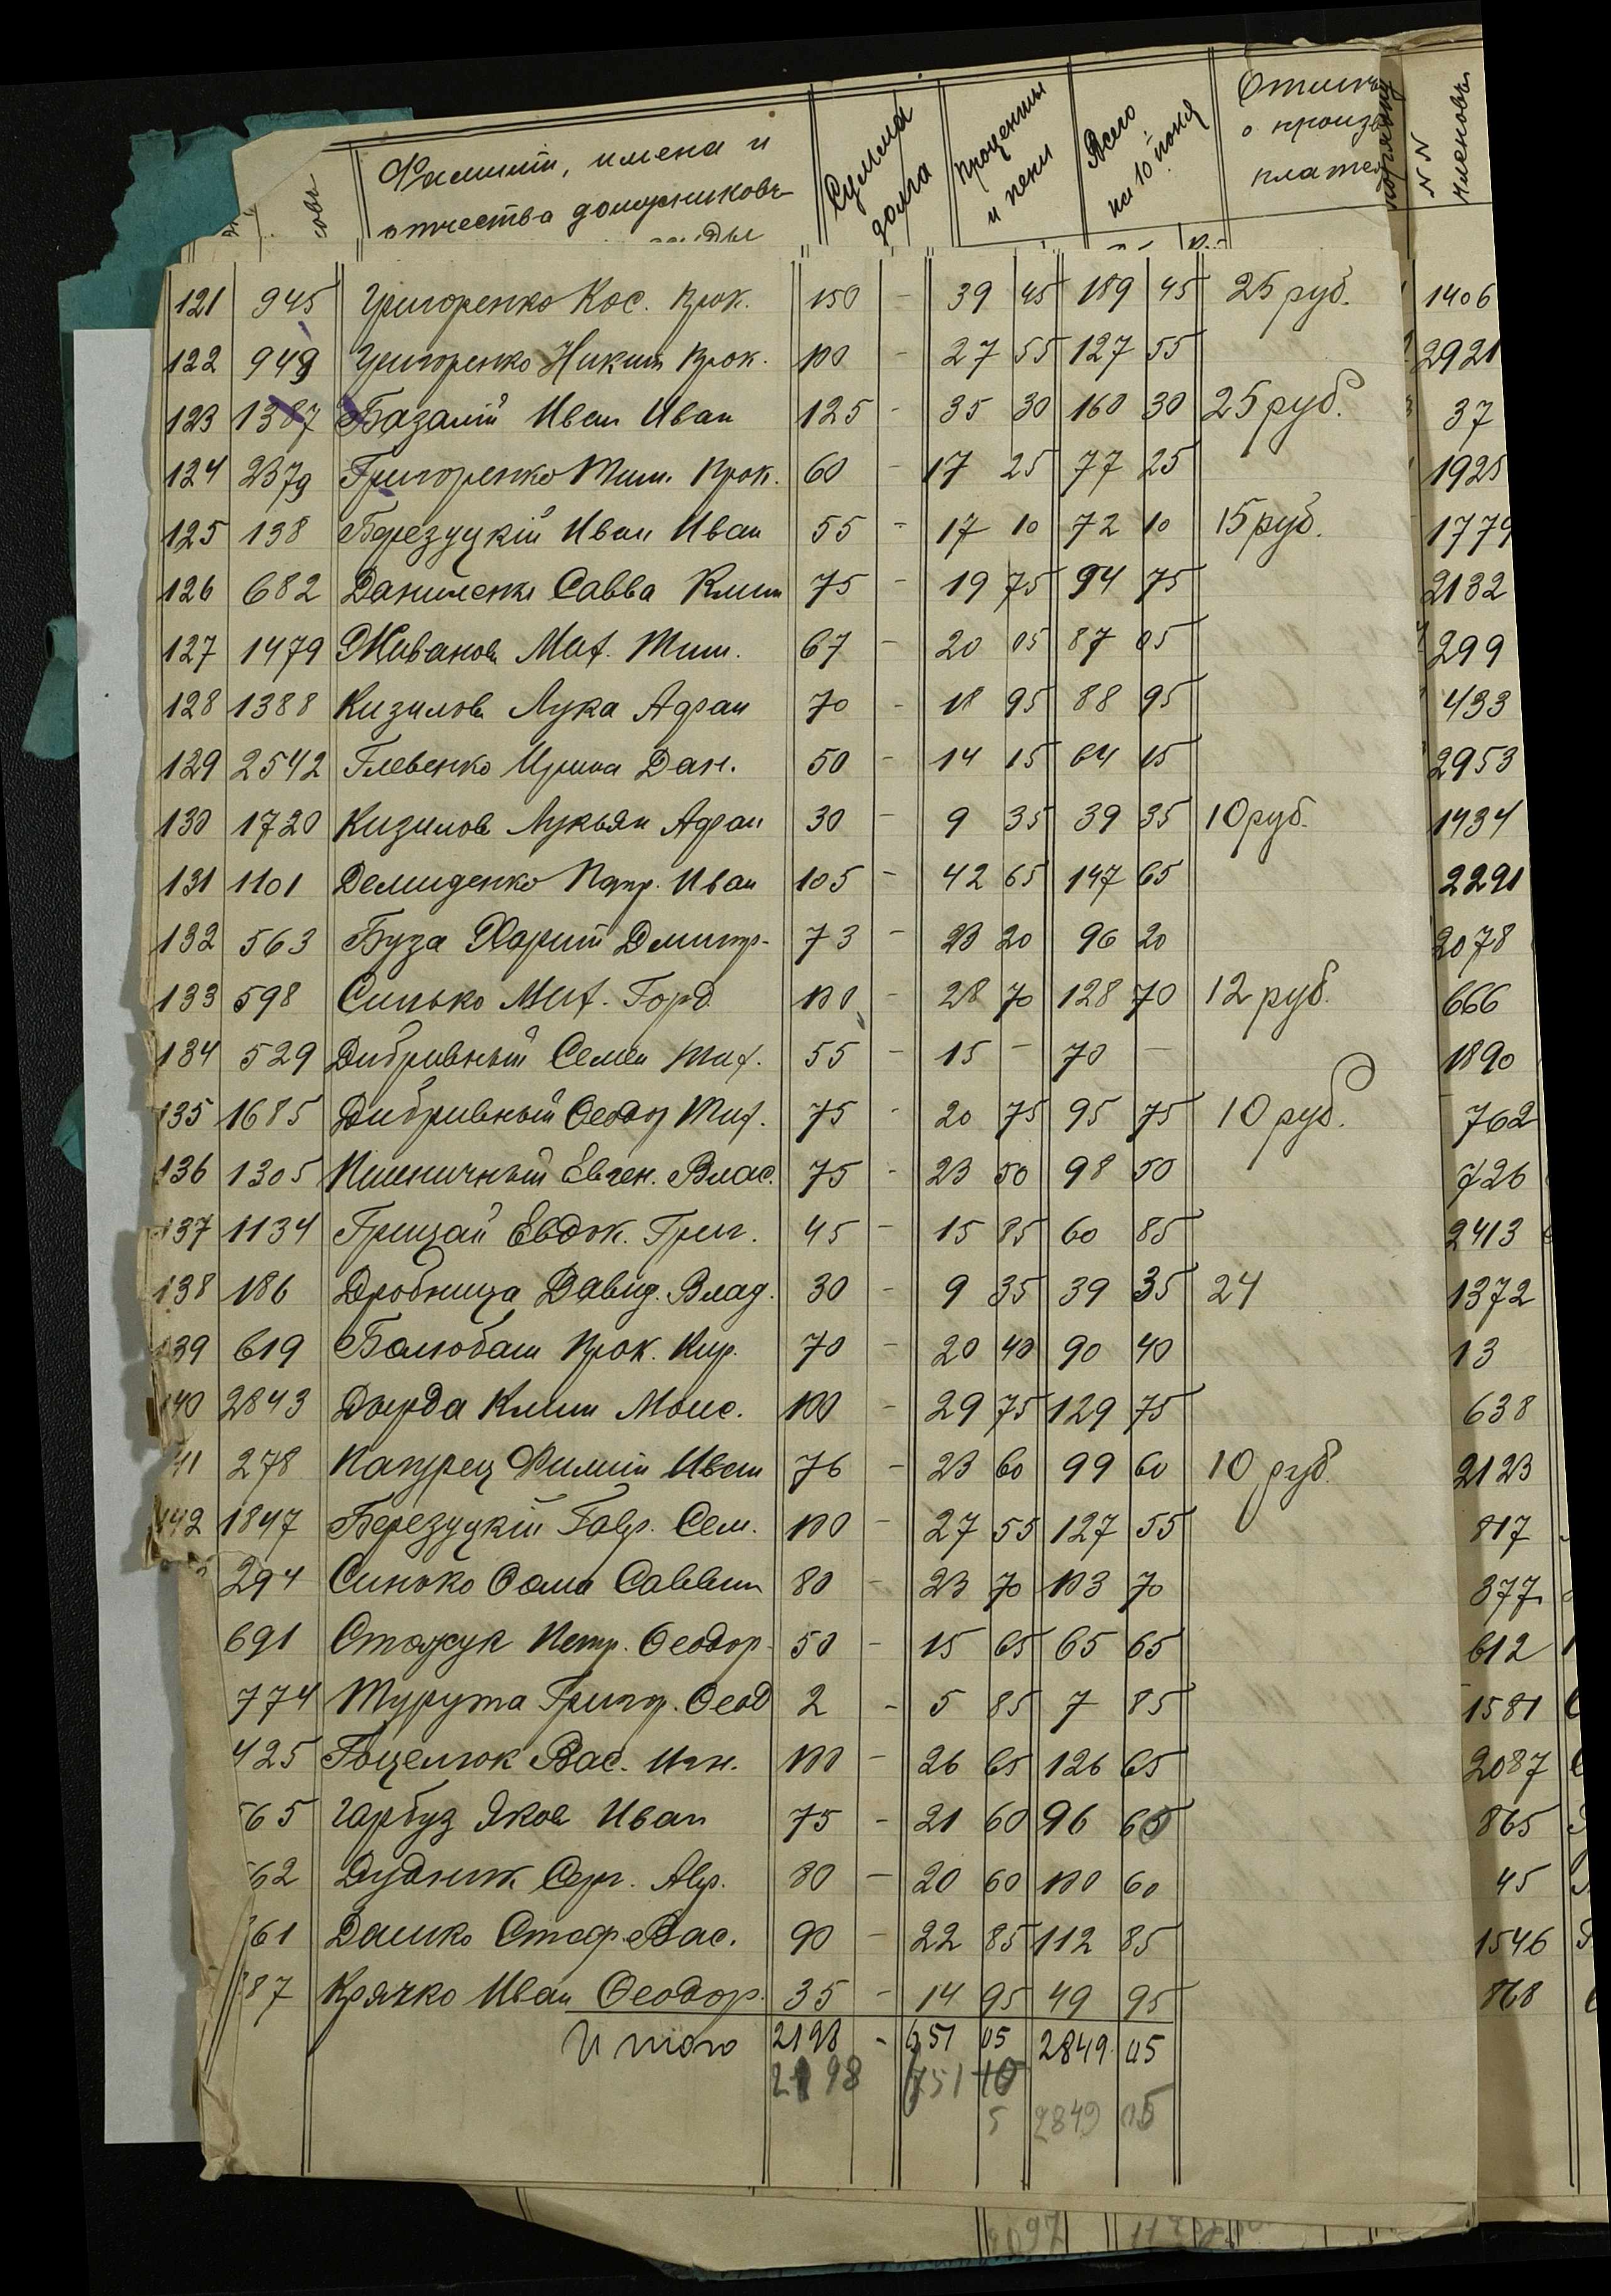 Фамиліи, имена и
отчества должниковъ
Сумма долга
Проценты и пени
Всего на 10 іюня
о произв
платеж
N N членовъ
121 945 Григоренко Кос. Прок. 150 - 39 45 189 45 25 руб. 1406
122 949 Григоренко Никит Прок. 100 - 27 55 127 55 2921
123 1387 Базалій Иван Иван 125 - 35 30 160 30 25 руб. 37
124 2379 Григоренко Тим. Прок. 60 - 17 25 77 25 1925
125 138 Березуцкій Иван Иван 55 - 17 10 72 10 15 руб. 1779
126 682 Даниленко Савва Клим 75 - 19 75 94 75 2132
127 1479 Живанов Мих. Тим. 67 - 20 05 87 05 299
128 1388 Кизилов Лука Адріан 70 - 18 95 88 95 433
129 2542 Глевенко Ирина Дан. 50 - 14 15 64 15 2953
130 1720 Кизилов Лукьян Адріан 30 - 9 35 39 35 10 руб. 1434
131 1101 Демиденко Иван 105 - 42 65 147 65 2291
132 563 Буза Харит Дмитр. 73 - 23 20 96 20 2078
133 598 Синько Мих. Горд. 100 - 28 70 128 70 12 руб. 666
134 529 Дибривный Семен Тих. 55 - 15 - 70 - 1890
135 1685 Дибривный Ѳеодор Тих. 75 - 20 75 95 75 10 руб. 762
136 1305 Пшеничный Евген. Влас. 75 - 23 50 98 50 726
137 1134 Грицай Евдок. Григ. 45 - 15 85 60 85 2413
138 186 Дробница Давид. Влад. 30 - 9 35 39 35 24 1372
139 619 Балюбаш Прок. Кир. 70 - 20 40 90 40 13
140 2843 Дырда Клим Моис. 100 - 29 75 129 75 638
41 278 Капурец Филип Иван 76 - 23 60 99 60 10 руб. 2123
142 1847 Березуцкій Гавр. Сем. 100 - 27 55 127 55 817
294 Синько Ѳома Саввич 80 - 23 70 103 70 377
691 Петр. Ѳеодор. 50 - 15 65 65 65 612
774 Турута Григор. Ѳеод 2 - 5 85 7 85 1581
425 Гоцелюк Вас. Игн. 100 - 26 65 126 65 2087
65 Гарбуз Яков Иван 75 - 21 60 96 60 865
62 Дудник Серг. Авр. 80 - 20 60 100 60 45
61 Дашко Стеф. Вас. 90 - 22 85 112 85 1546
87 Крячко Иван Ѳеодор. 35 - 14 95 49 95 868
Итого 2198 - 651 05 2849 05
2198 651 10
5 2849 05